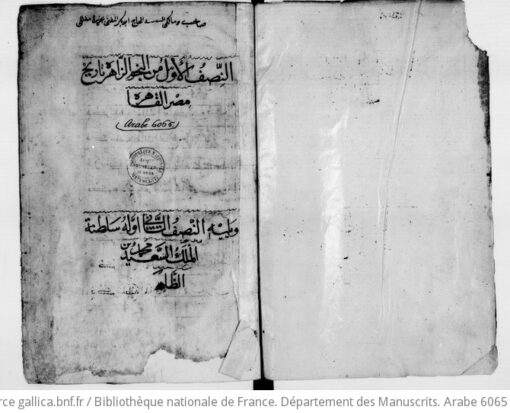 صاحب ومالكه
النصف الاول من النجوم الزاهرة تاريخ
مصر القاهرة
(Arabe 6065)
ويليه النصف الثاني اوله سلطنة
الملك السعيد محمد بن
الظاهر
rce gallica.bnf.fr / Bibliothèque nationale de France. Département des Manuscrits. Arabe 6065